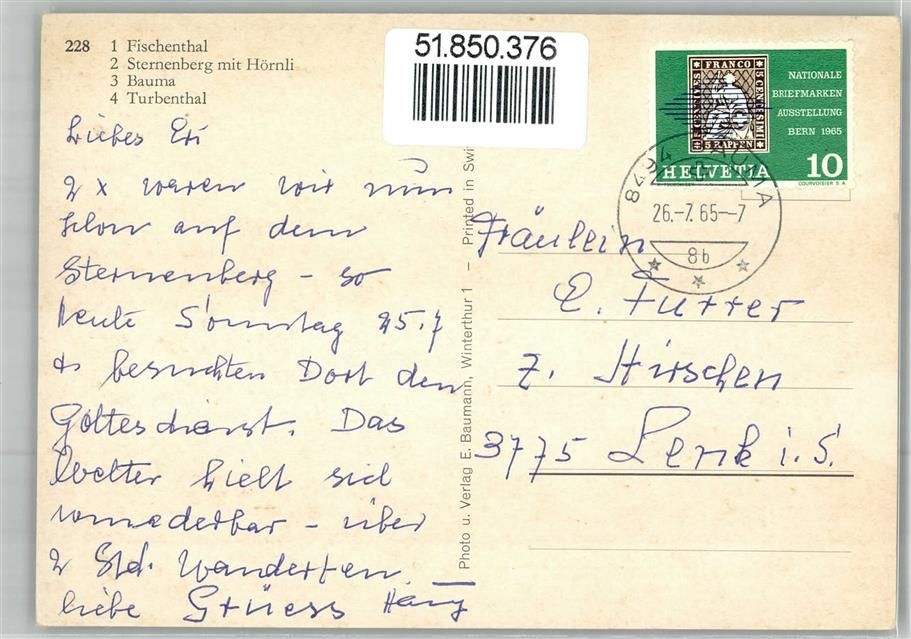 228 1 Fischenthal
2 Sternenberg mit Hörnli
3 Bauma
4 Turbenthal
51.850.376
NATIONALE
BRIEFMARKEN
AUSSTELLUNG
BERN 1965
FRANCO
5 CENTESIMI
5 RAPPEN
HELVETIA 10
COURVOISIER S.A.
8494 BAUMA
26.-7.65--7
8b
Liebes
2 x waren wir nun
schon auf dem
Sternenberg - so
heute Sonntag 25.7
& besuchten Dort den
Gottesdienst. Das
Wetter hielt sich
wunderbar - über
2 Std. wanderten.
liebe Grüess
Photo u. Verlag E. Baumann, Winterthur 1 – Printed in Swi
Fräulein
E. Futter
z. Hirschen
3775 Lenk i. S.